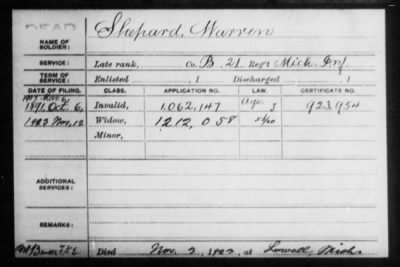 DEAD
NAME OF SOLDIER: Shepard, Warren
SERVICE: Late rank, Co. B. 21 Reg't Mich. Inf.
TERM OF SERVICE: Enlisted , 1 Discharged , 1
DATE OF FILING. CLASS. APPLICATION NO. LAW. CERTIFICATE NO.
1891. Oct. 6, Invalid, 1,062,147 923954
Nov. 12 Widow, 1,212,058
Minor,
ADDITIONAL SERVICES:
REMARKS:
Died Nov. 3, at Lowell, Mich